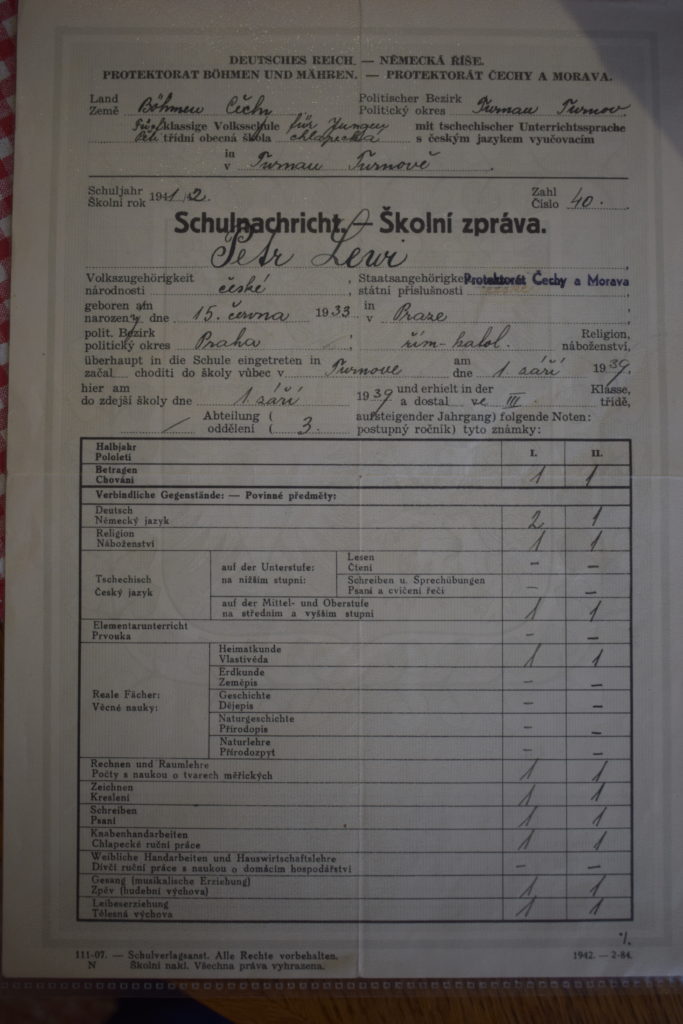 DEUTSCHES REICH. — NĚMECKÁ ŘÍŠE.
PROTEKTORAT BÖHMEN UND MÄHREN. — PROTEKTORÁT ČECHY A MORAVA.
Land Böhmen Čechy Politischer Bezirk Turnau Turnov
Země Politický okres
Fünfklassige Volksschule für Jungen mit tschechischer Unterrichtssprache
Pěti třídní obecná škola chlapecká s českým jazykem vyučovacím
in
v Turnau Turnově.
Schuljahr 1941/2. Zahl
Školní rok Číslo 40.
Schulnachricht. — Školní zpráva.
Petr Lewi
Volkszugehörigkeit české, Staatsangehörigkeit Protektorát Čechy a Morava
národnosti státní příslušnosti
geboren am in
narozený dne 15. června 1933 v Praze
polit. Bezirk Religion,
politický okres Praha řím-katol. náboženství,
überhaupt in die Schule eingetreten in am
začal choditi do školy vůbec v Turnově dne 1 září 1939.
hier am und erhielt in der Klasse,
do zdejší školy dne 1 září 1939 a dostal ve III. třídě,
Abteilung ( aufsteigender Jahrgang) folgende Noten:
oddělení ( 3. postupný ročník) tyto známky:
Halbjahr
Pololetí I. II.
Betragen
Chování 1 1
Verbindliche Gegenstände: — Povinné předměty:
Deutsch
Německý jazyk 2 1
Religion
Náboženství 1 1
Tschechisch
Český jazyk
auf der Unterstufe:
na nižším stupni:
Lesen
Čtení – –
Schreiben u. Sprechübungen
Psaní a cvičení řeči – –
auf der Mittel- und Oberstufe
na středním a vyšším stupni 1 1
Elementarunterricht
Prvouka – –
Reale Fächer:
Věcné nauky:
Heimatkunde
Vlastivěda 1 1
Erdkunde
Zeměpis – –
Geschichte
Dějepis – –
Naturgeschichte
Přírodopis – –
Naturlehre
Přírodozpyt – –
Rechnen und Raumlehre
Počty s naukou o tvarech měřických 1 1
Zeichnen
Kreslení 1 1
Schreiben
Psaní 1 1
Knabenhandarbeiten
Chlapecké ruční práce 1 1
Weibliche Handarbeiten und Hauswirtschaftslehre
Dívčí ruční práce s naukou o domácím hospodářství – –
Gesang (musikalische Erziehung)
Zpěv (hudební výchova) 1 1
Leibeserziehung
Tělesná výchova 1 1
./.
111-07. — Schulverlagsanst. Alle Rechte vorbehalten. 1942. — 2-84.
N Školní nakl. Všechna práva vyhrazena.